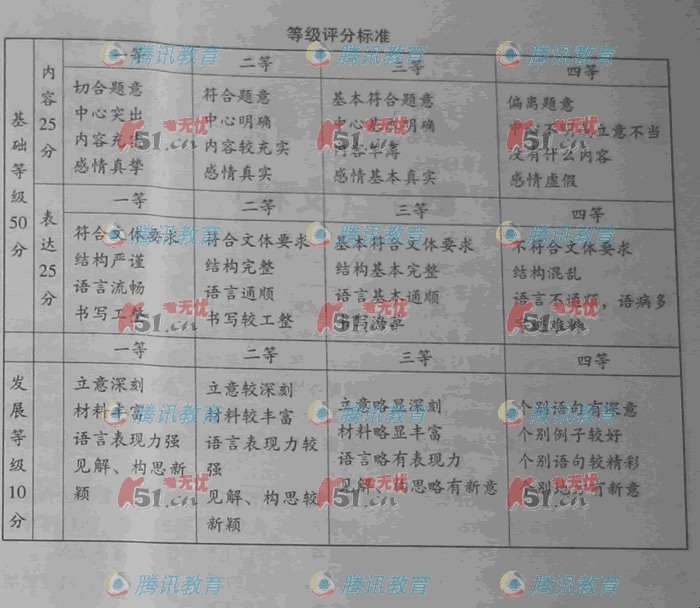 等级评分标准
基础等级50分
内容25分
一等
切合题意
中心突出
内容充
感情真挚
二等
符合题意
中心明确
内容较充实
感情真实
三等
基本符合题意
中心基本明确
内容单薄
感情基本真实
四等
偏离题意
中心不 立意不当
没有什么内容
感情虚假
表达25分
一等
符合文体要求
结构严谨
语言流畅
书写工整
二等
符合文体要求
结构完整
语言通顺
书写较工整
三等
基本符合文体要求
结构基本完整
语言基本通顺
书写
四等
不符合文体要求
结构混乱
语言不通顺，语病多
发展等级10分
一等
立意深刻
材料丰富
语言表现力强
见解、构思新
颖
二等
立意较深刻
材料较丰富
语言表现力较
强
见解、构思较
新颖
三等
立意略显深刻
材料略显丰富
语言略有表现力
见解、构思略有新意
四等
个别语句有深意
个别例子较好
个别语句较精彩
个别地方有新意
腾讯教育
腾讯教育
腾讯教育
腾讯教育
腾讯教育
腾讯教育
腾讯教育
腾讯教育
腾讯教育
腾讯教育
腾讯教育
腾讯教育
无忧
51.cn
无忧
51.cn
无忧
51.cn
无忧
51.cn
无忧
51.cn
无忧
51.cn
无忧
51.cn
无忧
51.cn
无忧
51.cn